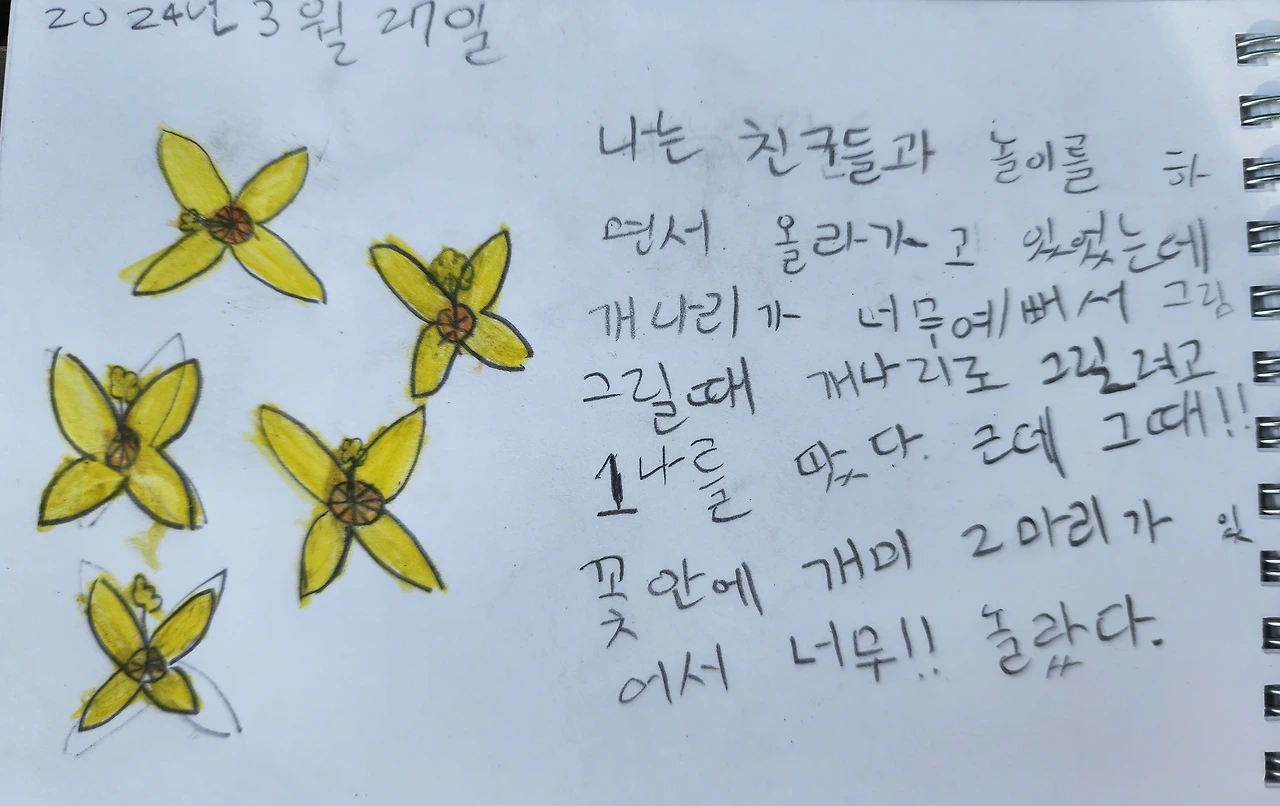 2024년 3월 27일
나는 친구들과 놀이를 하
면서 올라가고 있었는데
개나리가 너무예뻐서 그림
그릴때 개나리로 그릴려고
1나를 땄다. 근데 그때!!
꽃안에 개미 2마리가 있
어서 너무!! 놀랐다.